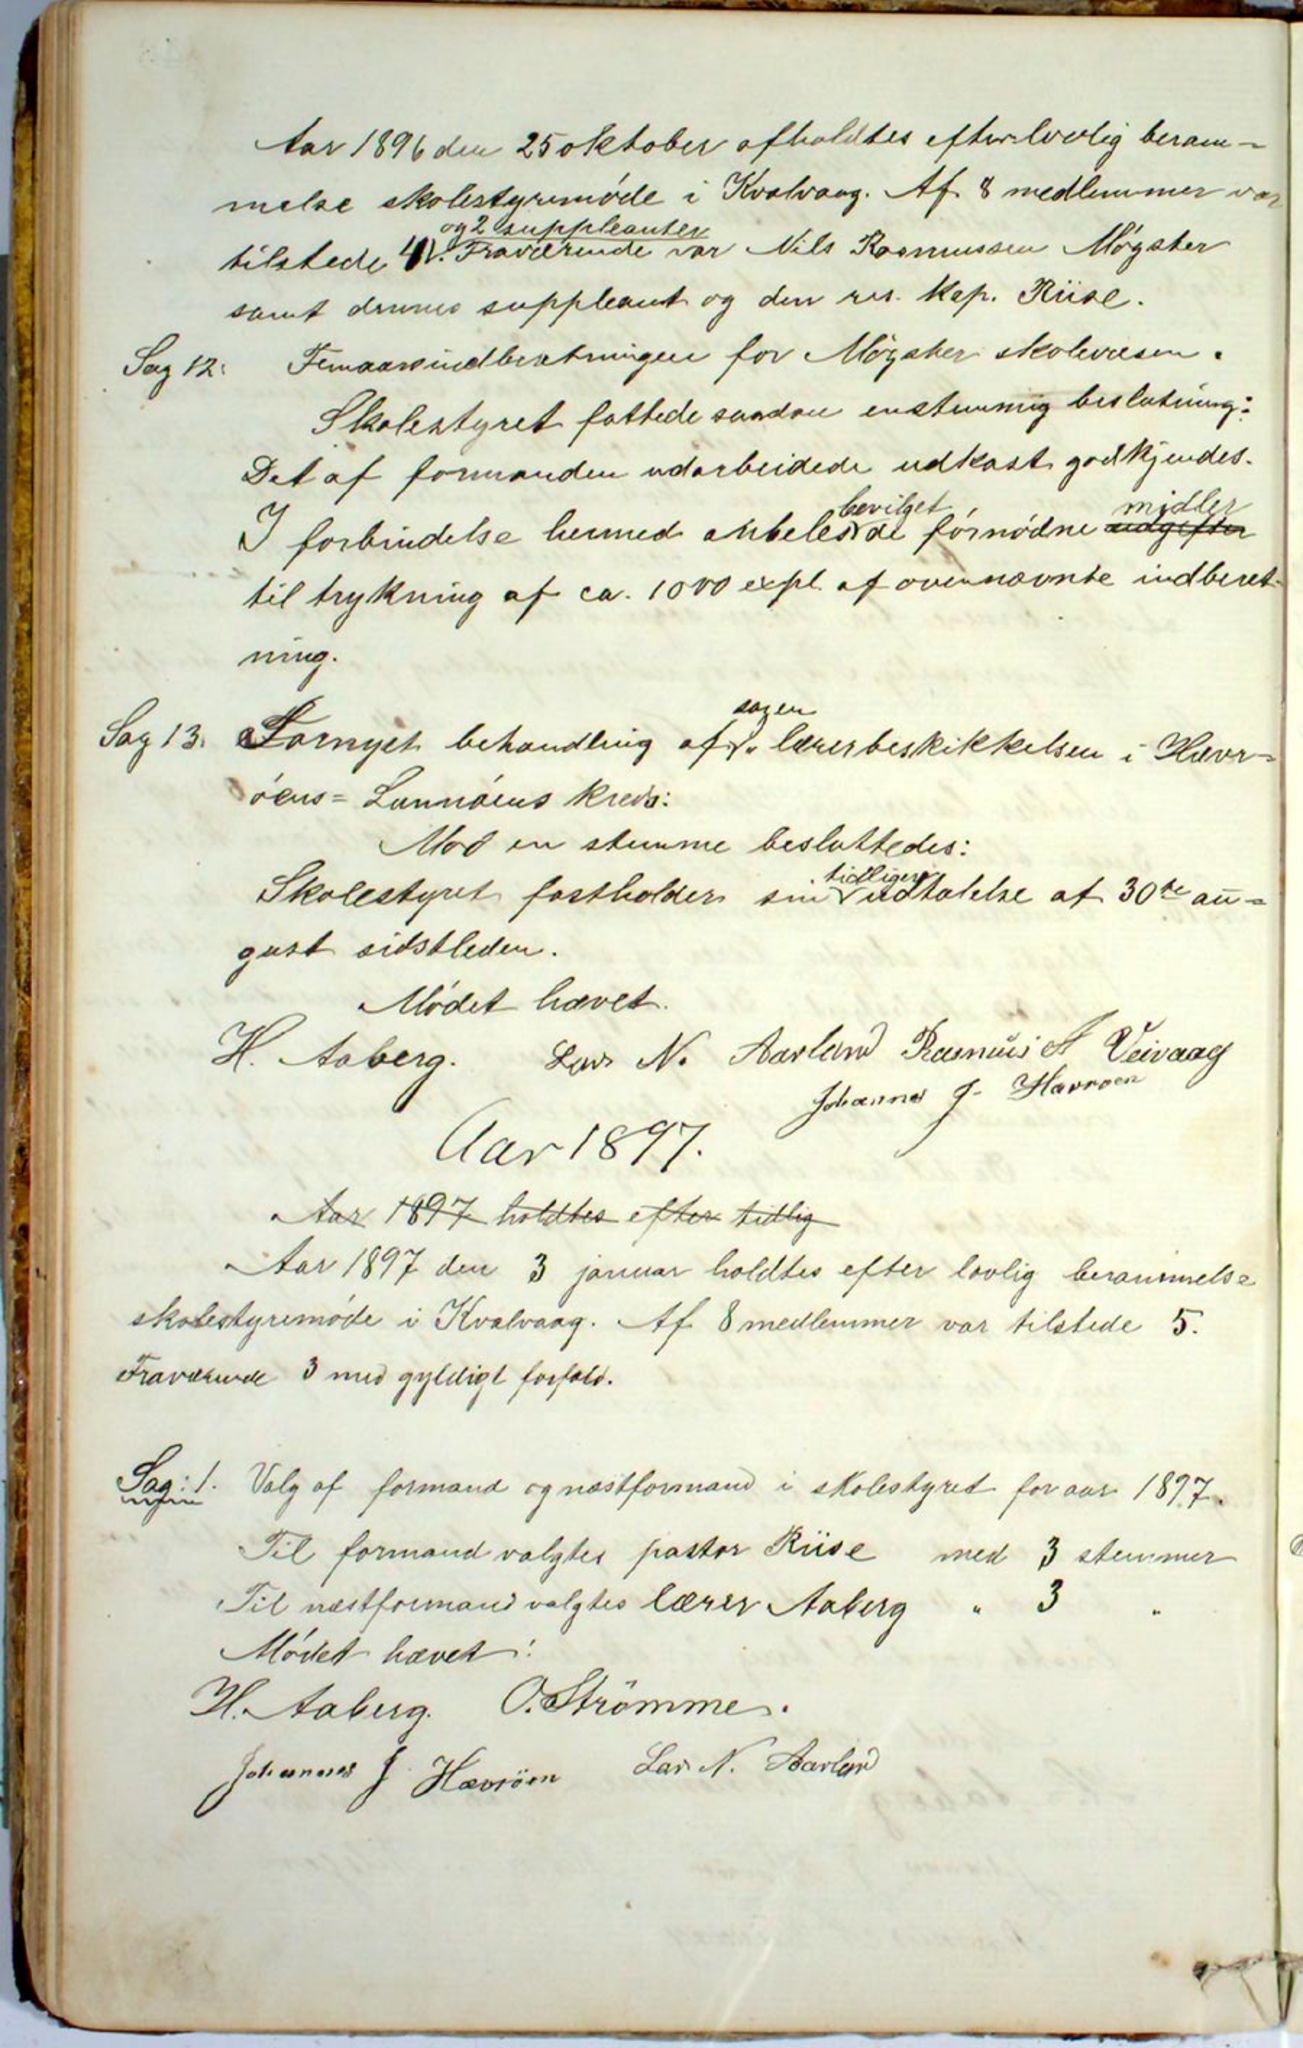 Aar 1896 den 25 oktober afholdtes efter lovlig beram-
melse skolestyremøde i Kvalvaag. Af 8 medlemmer var
og 2 suppleanter
tilstede 4. Fraværende var Nils Rasmussen Møgster
samt dennes suppleant og den res. kap. Riise.
Sag 12: Femaarsindberetningen for Møgster skolevæsen.
Skolestyret fattede saadan enstemmig beslutning:
Det af formanden udarbeidede udkast godkjendes.
bevilget midler
I forbindelse hermed anbeles de fórnødne udgifter
til trykning af ca. 1000 expl. af ovennævnte indberet-
ning.
sagen
Sag 13. Fornyet behandling af lærerbeskikkelsen i Hævr-
öens= Lunnöens kreds:
Mod en stemme besluttedes:
tidligere
Skolestyret fastholder sin udtalelse af 30te au-
gust sidstleden.
Mödet hævet.
H. Aaberg. Lars N. Aarland Rasmus A Veivaag
Johannes J. Havroen
Aar 1897.
Aar 1897 holdtes efter tidlig
Aar 1897 den 3 januar holdtes efter lovlig berammelse
skolestyremöde i Kvalvaag. Af 8 medlemmer var tilstede 5.
Fraværende 3 med gyldigt forfald.
Sag: 1. Valg af formand og næstformand i skolestyret for aar 1897.
Til formand valgtes pastor Riise med 3 stemmer
Til næstformand valgtes lærer Aaberg " 3 "
Mödet hævet:
H. Aaberg. O. Strömme.
Johannes J Hævröen Lars N. Aarland